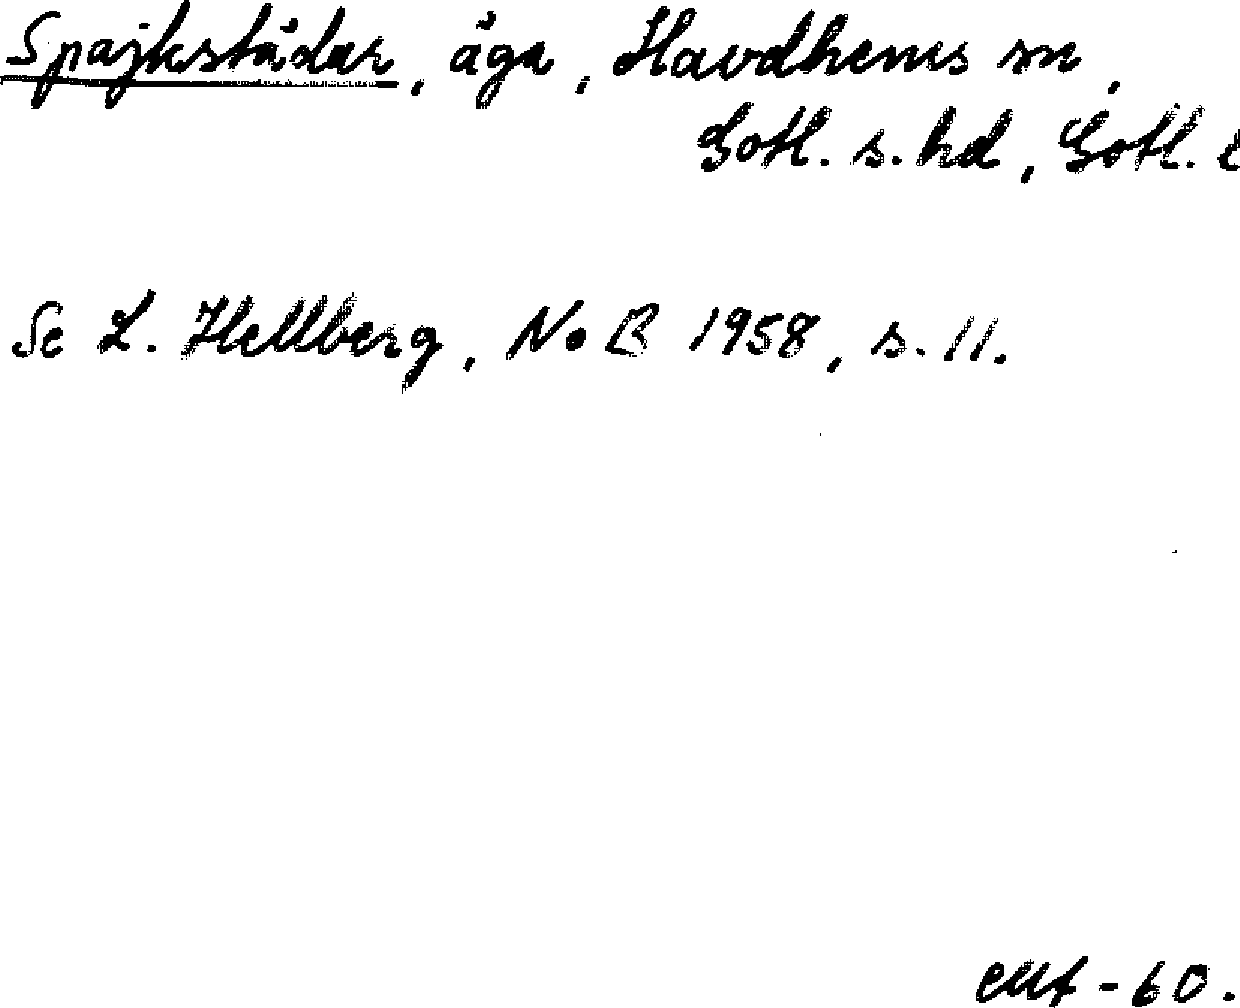 Spajkstädar, äga, Havdhems sn,
Gotl. s. hd, Gotl. l
Se L. Hellberg, NoB 1958, s. 11.
-60.